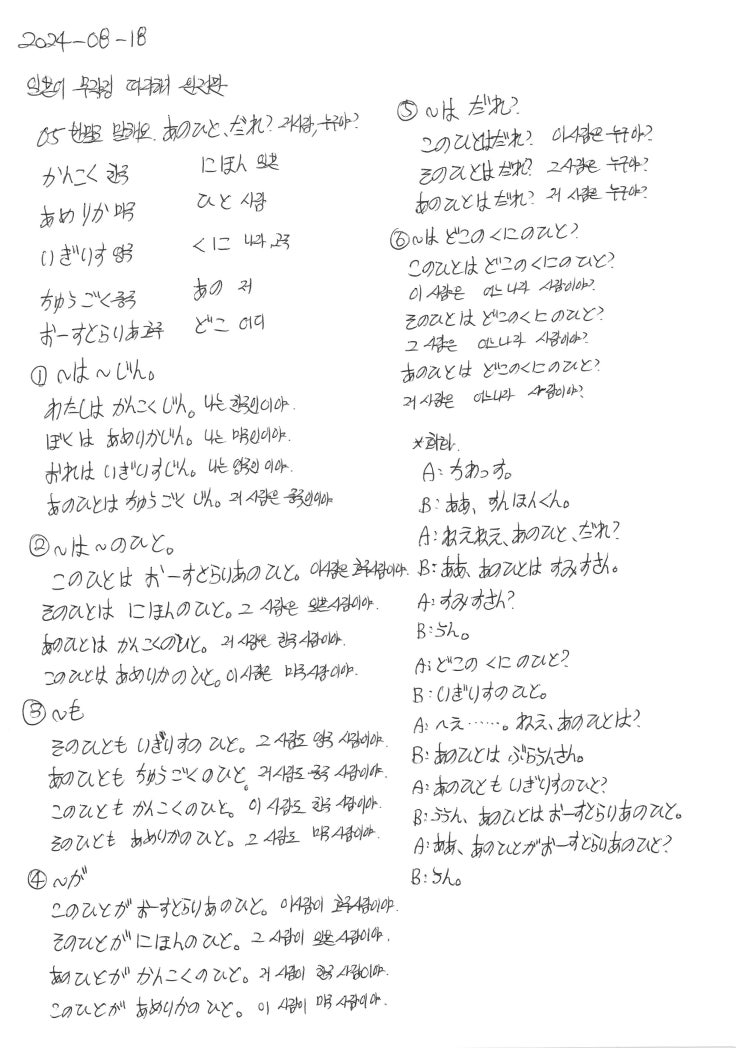 2024-08-18
일본어 무작정 따라하기 완전판
05 한마디로 말해요. あのひと、だれ? 저사람, 누구야?
かんこく 한국 にほん 일본
あめりか 미국 ひと 사람
いぎりす 영국 くに 나라, 고국
ちゅうごく 중국 あの 저
おーすとらりあ 호주 どこ 어디
① ~は~じん。
わたしは かんこくじん。 나는 한국인이야.
ぼくは あめりかじん。 나는 미국인이야.
おれは いぎりすじん。 나는 영국인이야.
あのひとは ちゅうごくじん。 저 사람은 중국인이야
② ~は~のひと。
このひとは おーすとらりあのひと。 이사람은 호주사람이야.
そのひとは にほんのひと。 그 사람은 일본사람이야.
あのひとは かんこくのひと。 저 사람은 한국 사람이야.
このひとは あめりかのひと。 이 사람은 미국 사람이야.
③ ~も
そのひとも いぎりすの ひと。 그 사람도 영국 사람이야.
あのひとも ちゅうごくのひと。 저 사람도 중국 사람이야.
このひとも かんこくのひと。 이 사람도 한국 사람이야.
そのひとも あめりかのひと。 그 사람도 미국 사람이야.
④ ~が
このひとが おーすとらりあのひと。 이사람이 호주사람이야.
そのひとが にほんのひと。 그 사람이 일본사람이야.
あのひとが かんこくのひと。 저 사람이 한국 사람이야.
このひとが あめりかのひと。 이 사람이 미국 사람이야.
⑤ ~は だれ?
このひとはだれ? 이사람은 누구야?
そのひとはだれ? 그 사람은 누구야?
あのひとはだれ? 저 사람은 누구야?
⑥ ~は どこの くにのひと?
このひとは どこの くにの ひと?
이 사람은 어느 나라 사람이야?
そのひとは どこのくにのひと?
그 사람은 어느나라 사람이야?
あのひとは どこのくにのひと?
저 사람은 어느나라 사람이야?
*회화
A: ちわっす。
B: ああ、すんほんくん。
A: ねえねえ、あのひと、だれ?
B: ああ、あのひとは すみすさん。
A: すみすさん?
B: うん。
A: どこの くにのひと?
B: いぎりすのひと。
A: へえ……。 ねえ、あのひとは?
B: あのひとは ぶらうんさん。
A: あのひとも いぎりすのひと?
B: ううん、あのひとは おーすとらりあのひと。
A: ああ、あのひとが おーすとらりあのひと?
B: うん。